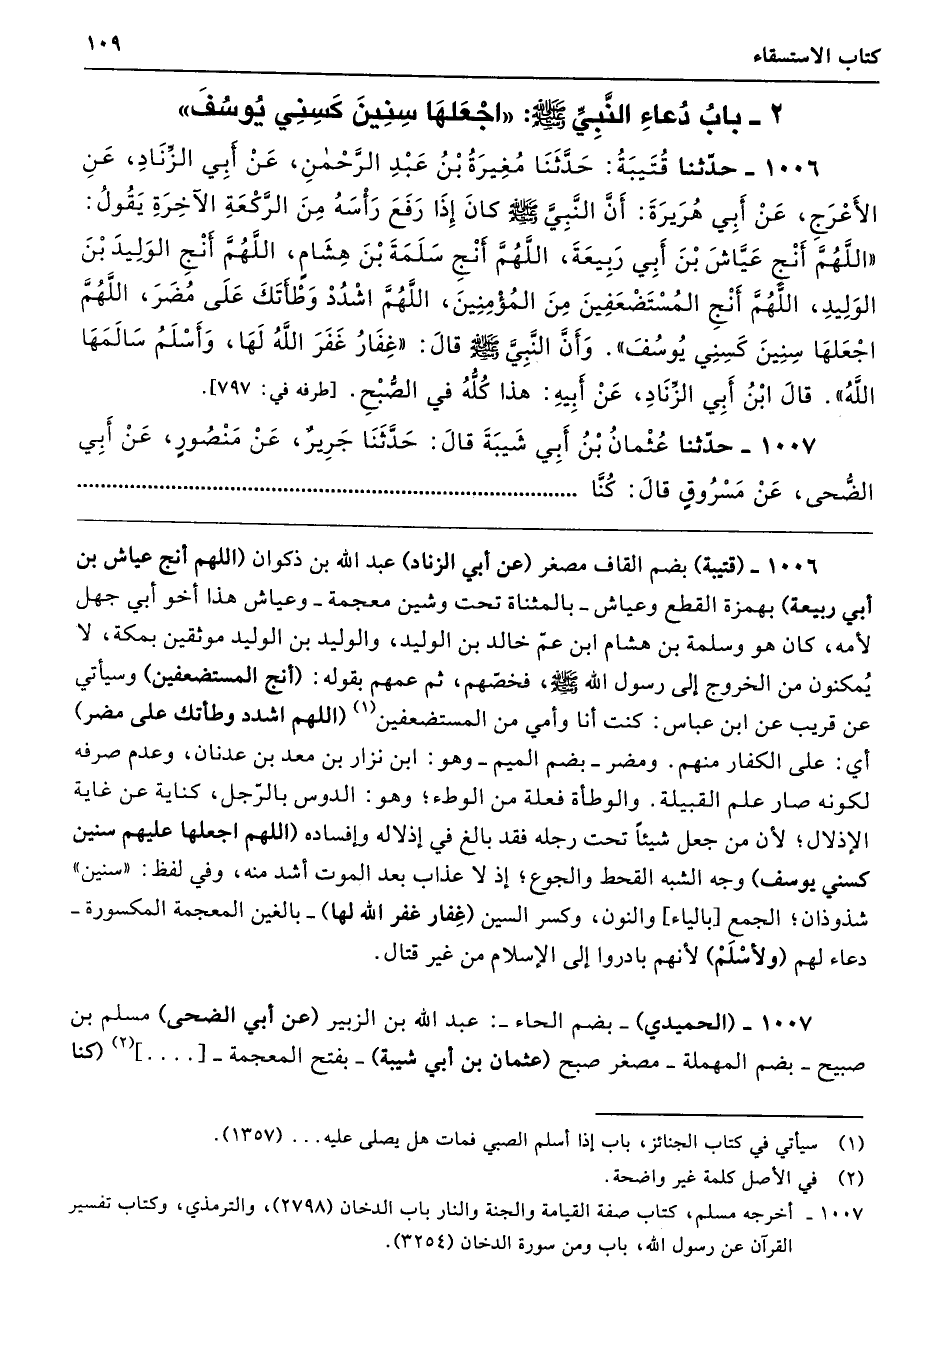 كتاب الاستسقاء
١٠٩
٢ ـ بابُ دُعاءِ النَّبِيِّ ﷺ: «اجْعَلهَا سِنِينَ كَسِنِي يُوسُفَ»
١٠٠٦ ـ حدّثنا قُتَيبَةُ: حَدَّثَنَا مُغِيرَةُ بْنُ عَبْدِ الرَّحْمٰنِ، عَنْ أَبِي الزِّنَادِ، عَنِ
الأَعْرَجِ، عَنْ أَبِي هُرَيرَةَ: أَنَّ النَّبِيَّ ﷺ كانَ إِذَا رَفَعَ رَأْسَهُ مِنَ الرَّكْعَةِ الآخِرَةِ يَقُولُ:
«اللَّهُمَّ أَنْجِ عَيَّاشَ بْنَ أَبِي رَبِيعَةَ، اللَّهُمَّ أَنْجِ سَلَمَةَ بْنَ هِشَامٍ، اللَّهُمَّ أَنْجِ الوَلِيدَ بْنَ
الوَلِيدِ، اللَّهُمَّ أَنْجِ المُسْتَضْعَفِينَ مِنَ المُؤْمِنِينَ، اللَّهُمَّ اشْدُدْ وَطْأَتَكَ عَلَى مُضَرَ، اللَّهُمَّ
اجْعَلهَا سِنِينَ كَسِنِي يُوسُفَ». وَأَنَّ النَّبِيَّ ﷺ قالَ: «غِفَارُ غَفَرَ اللَّهُ لَهَا، وَأَسْلَمُ سَالَمَهَا
اللَّهُ». قالَ ابْنُ أَبِي الزِّنَادِ، عَنْ أَبِيهِ: هذا كُلُّهُ في الصُّبْحِ. [طرفه في: ٧٩٧].
١٠٠٧ ـ حدّثنا عُثْمانُ بْنُ أَبِي شَيبَةَ قالَ: حَدَّثَنَا جَرِيرٌ، عَنْ مَنْصُورٍ، عَنْ أَبِي
الضُّحى، عَنْ مَسْرُوقٍ قالَ: كُنَّا ....................
١٠٠٦ ـ (قتيبة) بضم القاف مصغر (عن أبي الزناد) عبد الله بن ذكوان (اللهم أنج عياش بن
أبي ربيعة) بهمزة القطع وعياش ـ بالمثناة تحت وشين معجمة ـ وعياش هذا أخو أبي جهل
لأمه، كان هو وسلمة بن هشام ابن عمّ خالد بن الوليد، والوليد بن الوليد موثقين بمكة، لا
يُمكنون من الخروج إلى رسول الله ﷺ، فخصّهم، ثم عمهم بقوله: (أنج المستضعفين) وسيأتي
عن قريب عن ابن عباس: كنت أنا وأمي من المستضعفين(١) (اللهم اشدد وطأتك على مضر)
أي: على الكفار منهم. ومضر ـ بضم الميم ـ وهو: ابن نزار بن معد بن عدنان، وعدم صرفه
لكونه صار علم القبيلة. والوطأة فعلة من الوطء؛ وهو: الدوس بالرّجل، كناية عن غاية
الإذلال؛ لأن من جعل شيئاً تحت رجله فقد بالغ في إذلاله وإفساده (اللهم اجعلها عليهم سنين
كسني يوسف) وجه الشبه القحط والجوع؛ إذ لا عذاب بعد الموت أشد منه، وفي لفظ: «سنين»
شذوذان؛ الجمع [بالياء] والنون، وكسر السين (غِفار غفر الله لها) ـ بالغين المعجمة المكسورة ـ
دعاء لهم (ولأَسْلَمْ) لأنهم بادروا إلى الإسلام من غير قتال.
١٠٠٧ ـ (الحميدي) ـ بضم الحاء ـ: عبد الله بن الزبير (عن أبي الضحى) مسلم بن
صبيح ـ بضم المهملة ـ مصغر صبح (عثمان بن أبي شيبة) ـ بفتح المعجمة ـ [....](٢) (كنا
(١) سيأتي في كتاب الجنائز، باب إذا أسلم الصبي فمات هل يصلى عليه... (١٣٥٧).
(٢) في الأصل كلمة غير واضحة.
١٠٠٧ ـ أخرجه مسلم، كتاب صفة القيامة والجنة والنار باب الدخان (٢٧٩٨)، والترمذي، وكتاب تفسير
القرآن عن رسول الله، باب ومن سورة الدخان (٣٢٥٤).